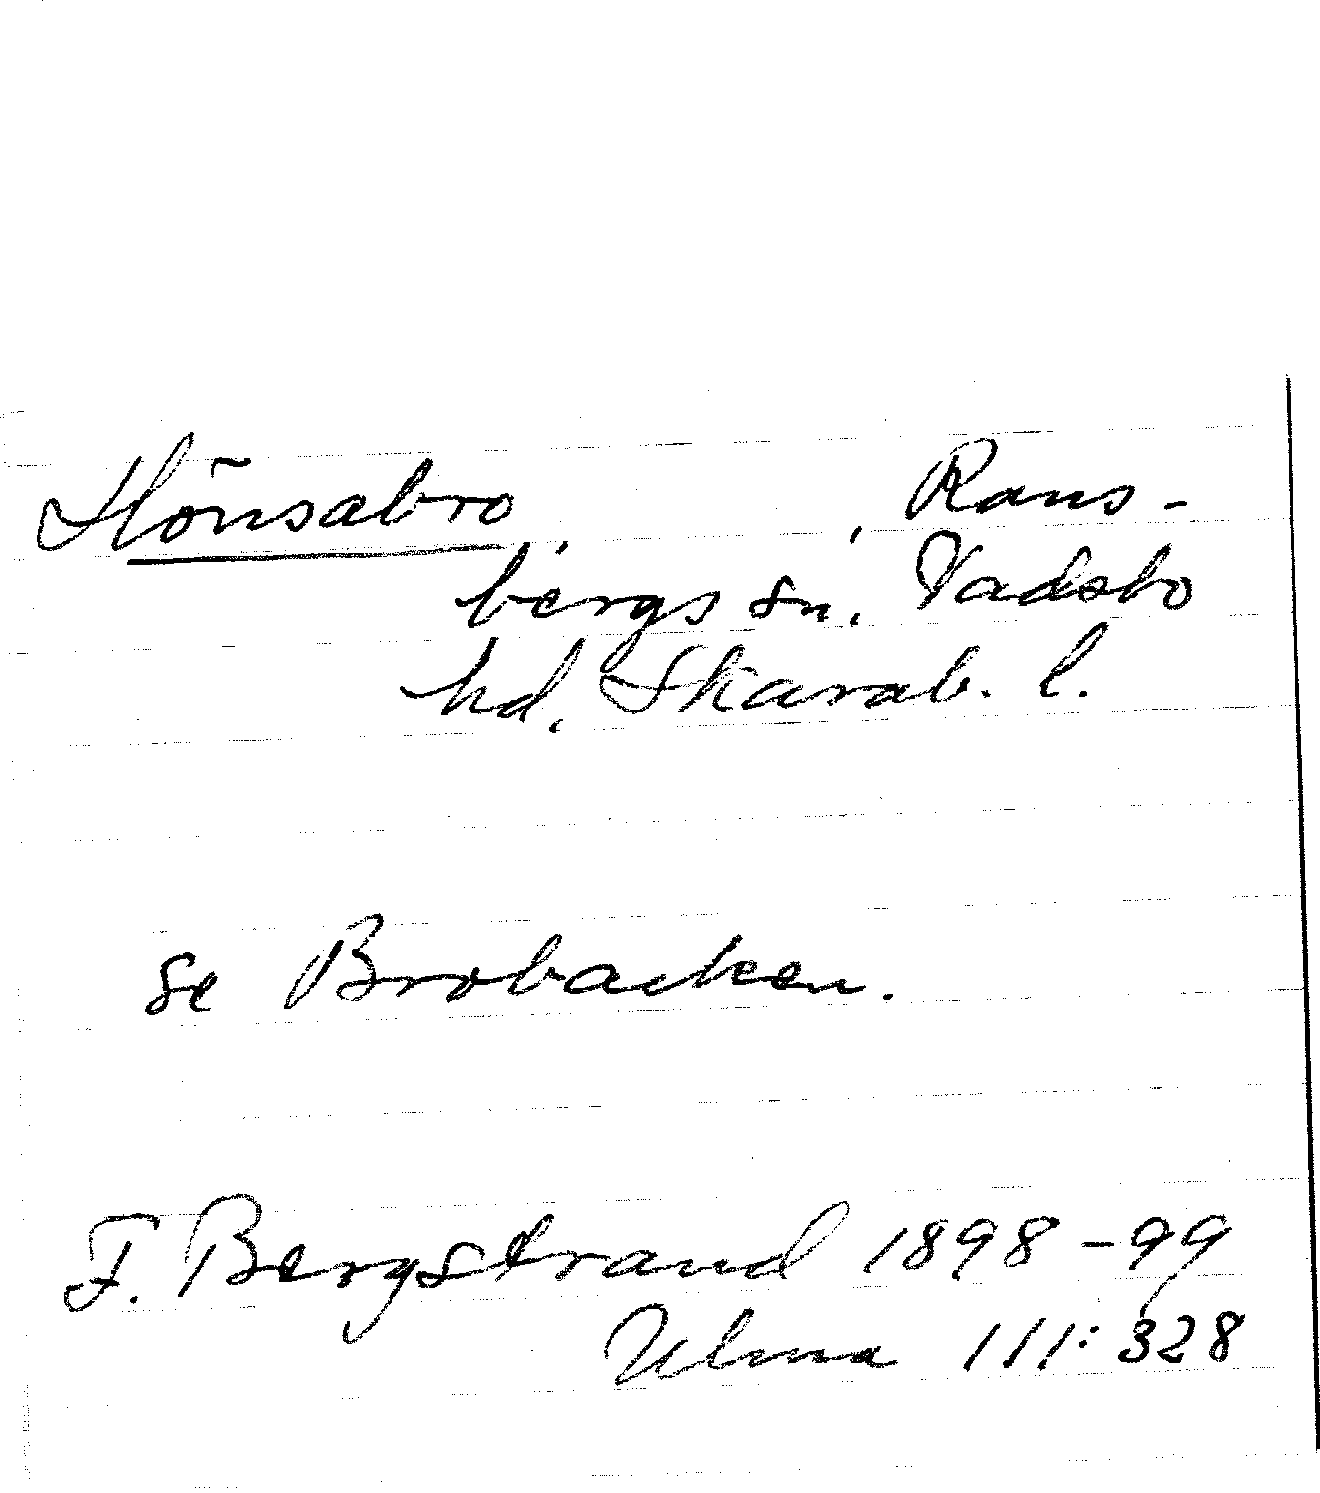 Hönsabro, , Rans-
bergs sn. Vadsbo
hd. Skarab. l.
se Brobacken.
F. Bergstrand 1898-99
Ulma 111:328